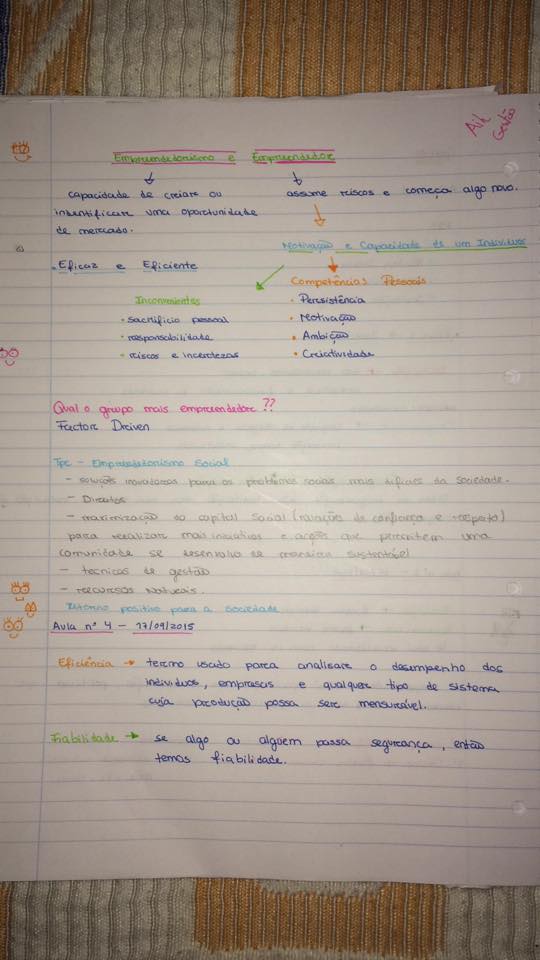 Gestão
Empreendedorismo e Empreendedor
capacidade de creiare ou
indentificare uma oportunidade
de mercado.
assume riscos e começa algo novo.
Motivação e Capacidade de um Individuo
• Eficaz e Eficiente
Inconvenientes
• sacrificio pessoal
• responsabilidade
• riscos e incertezas
Competências Pessoais
• Persistência
• Motivação
• Ambição
• Creiatividade
Qual o grupo mais empreendedore ??
Factore Dreiven
Tpc - Empreendedorismo Social
- soluções inovadoras para os problemas sociais mais dificies da sociedade.
- Direitos
- maximização do capital Social (relações de confiança e respeito)
para realizare mais iniciativas e acções que permitem uma
comunidade se desenvolva de maneira sustentável
- tecnicas de gestão
- recursos Naturais.
Retorno positivo para a sociedade
Aula nº 4 - 17/09/2015
Eficiência → termo usado para analisare o desempenho dos
individuos, empresas e qualquer tipo de sistema
cuja produção possa sere mensurável.
Fiabilidade → se algo ou alguem passa segurança, então
temos fiabilidade.